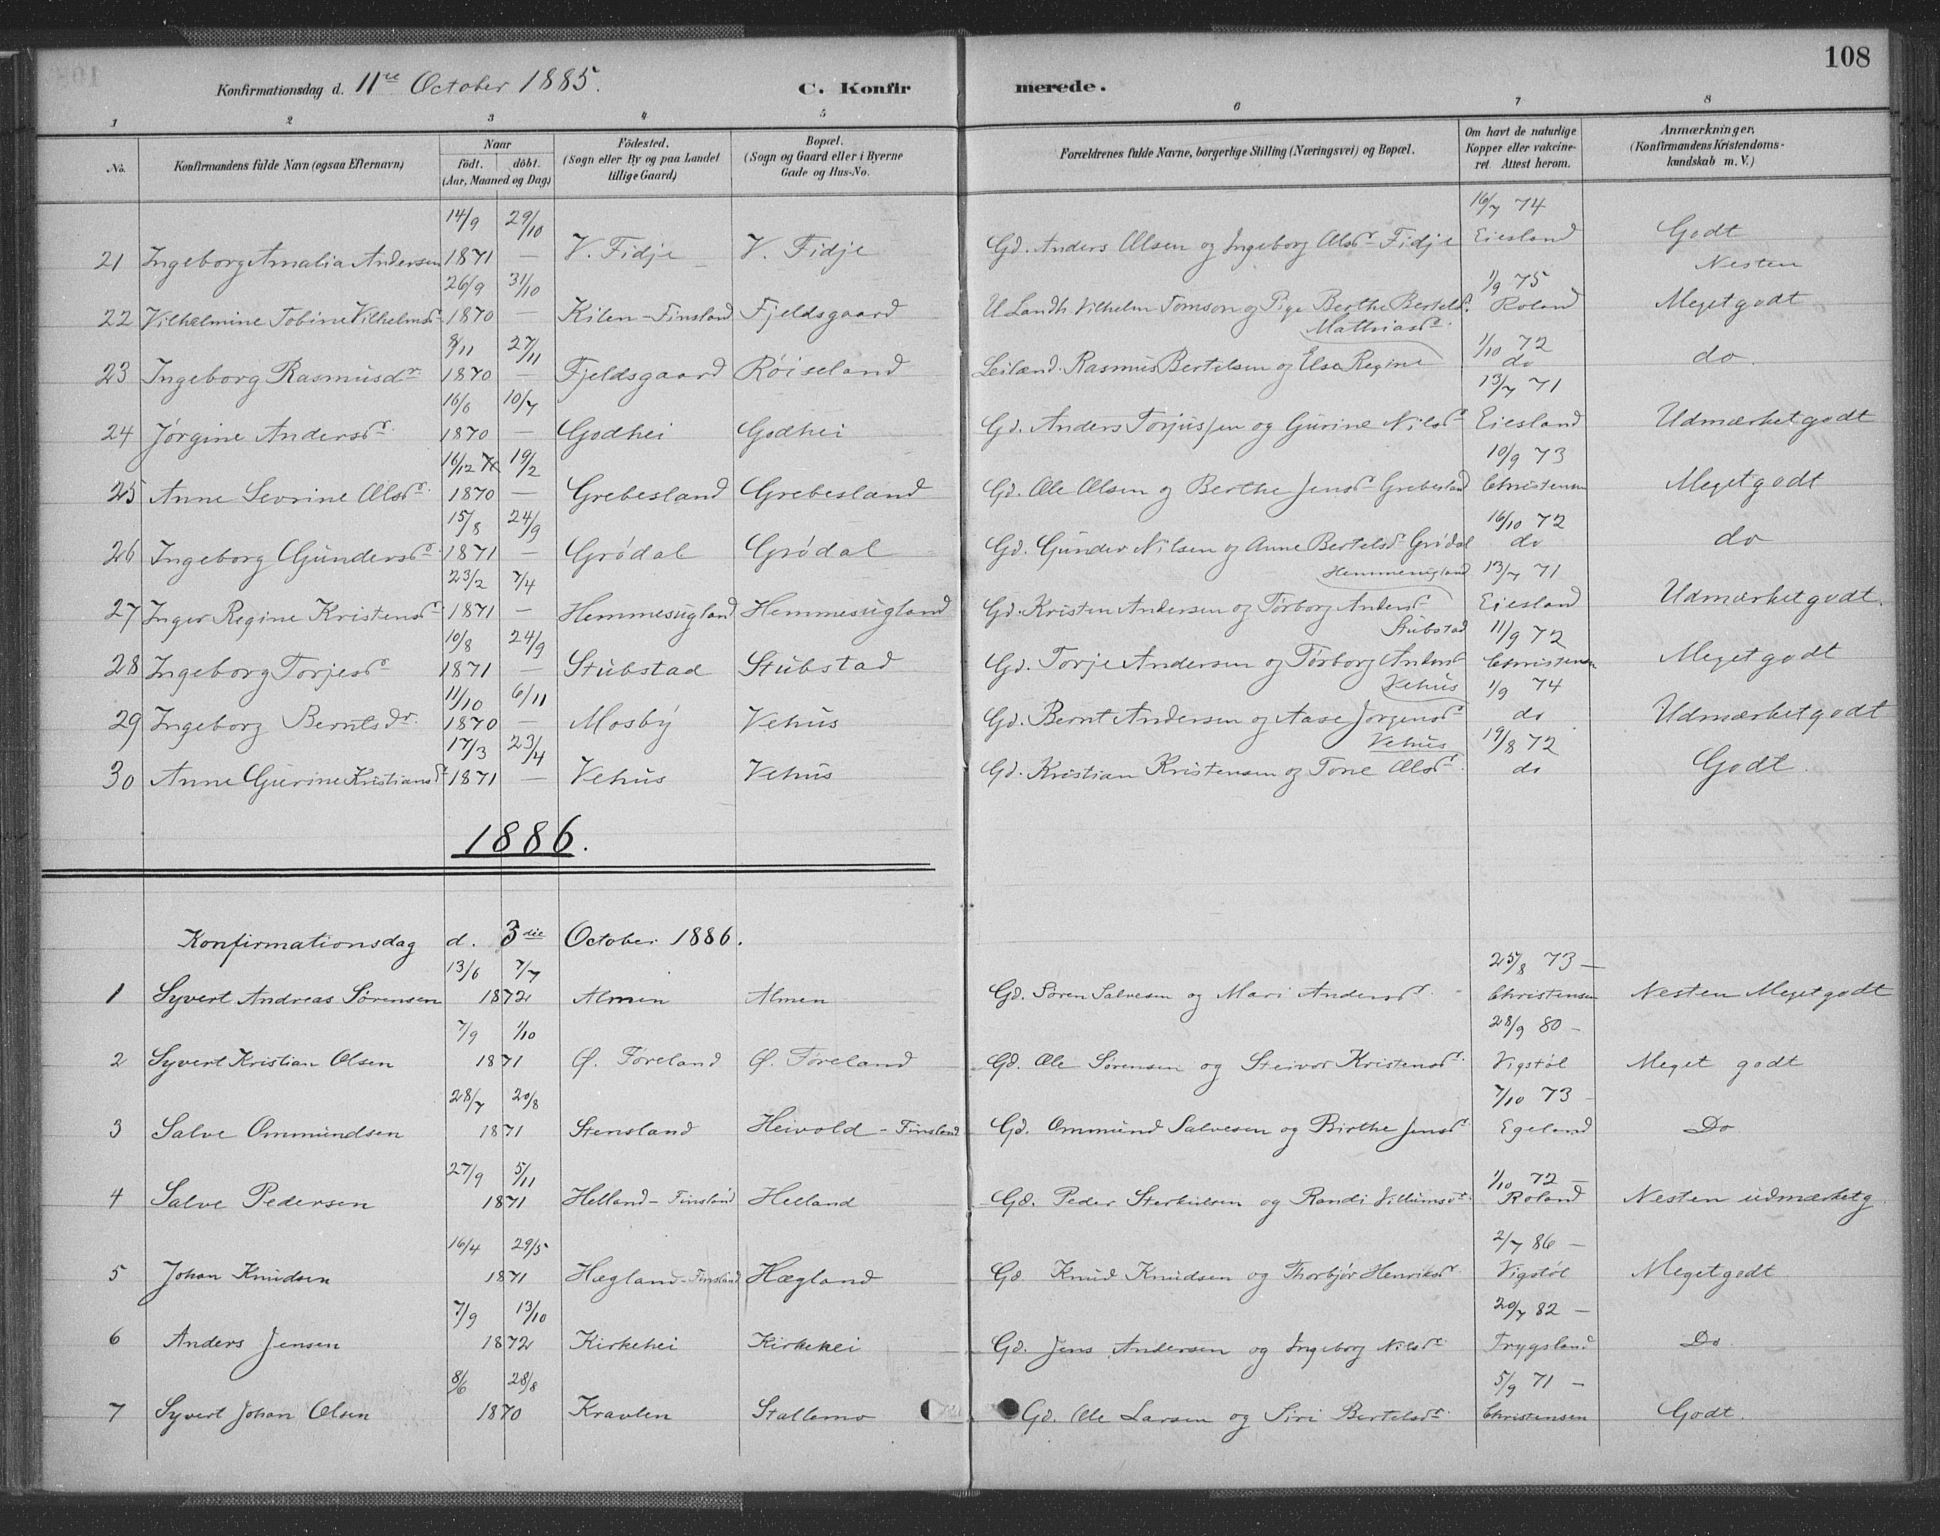 108
Konfirmationsdag d. 11te October 1885. C. Konfirmerede.
1 2 3 4 5 6 7 8
No. Konfirmandens fulde Navn (ogsaa Efternavn) Naar født. døbt. (Aar, Maaned og Dag) Fødested. (Sogn eller By og paa Landet tillige Gaard) Bopæl. (Sogn og Gaard eller i Byerne Gade og Hus-No. Forældrenes fulde Navne, borgerlige Stilling (Næringsvei) og Bopæl. Om havt de naturlige Kopper eller vakcineret. Attest herom. Anmærkninger. (Konfirmandens Kristendomskundskab m. V.)
14/9 29/10 16/7 74
21 Ingeborg Amalia Andersen 1871 — V. Fidje V. Fidje Gd. Anders Olsen og Ingeborg Olsdr Fidje Eiesland Godt
26/9 31/10 1/9 75 Nesten
22 Vilhelmine Tobine Vilhelmsdr 1870 — Kilen - Finsland Fjeldsgaard U Landh. Vilhelm Tomson og Pige Berthe Bertelsd. Roland Meget godt
8/11 27/11 Mathiasdr. 1/10 72
23 Ingeborg Rasmusdr 1870 — Fjeldsgaard Røiseland Leilænd. Rasmus Bertelsen og Else Regine do do
16/6 10/7 13/7 71
24 Jørgine Andersdr. 1870 — Godhei Godhei Gd. Anders Torjussen og Gurine Nilsdr Eiesland Udmærket godt
16/12 70 19/2 10/9 73
25 Anne Sevrine Olsdr. 1870 — Grebesland Grebesland Gd. Ole Olsen og Berthe Jensdr Grebesland Christensen Meget godt
15/8 24/9 16/10 72
26 Ingeborg Gundersdr 1871 — Grødal Grødal Gd. Gunder Nilsen og Anne Bertelsdr Grødal do do
23/2 7/4 Hemmesugland 13/7 71
27 Inger Regine Kristensdr 1871 — Hemmesugland Hemmesugland Gd. Kristen Andersen og Torborg Andersdr Eiesland Udmærket godt.
10/8 24/9 Stubstad 11/9 72
28 Ingeborg Torjesdr 1871 — Stubstad Stubstad Gd. Torje Andersen og Torborg Andersdr Christensen Meget godt
11/10 6/11 Vehus 1/9 74
29 Ingeborg Berntsdr. 1870 — Mosby Vehus Gd. Bernt Andersen og Aase Jørgensdr do Udmærket godt
17/3 23/4 Vehus 19/8 72
30 Anne Gurine Kristiansdr 1871 — Vehus Vehus Gd. Kristian Kristensen og Tone Olsdr. do Godt.
1886.
Konfirmationsdag d. 3die October 1886.
13/6 7/7 25/8 73 —
1 Syvert Andreas Sørensen 1872 Almen Almen Gd. Søren Salvesen og Mari Andersdr. Christensen Nesten Meget godt
7/9 1/10 28/9 80 -
2 Syvert Kristian Olsen 1871 Ø. Føreland Ø. Føreland Gd. Ole Sørensen og Steivor Kristensdr. Vigstøl Meget godt
28/7 20/8 7/10 73 -
3 Salve Ommundsen 1871 Stensland Heivold - Finsland Gd. Ommund Salvesen og Birthe Jensdr. Egeland Do
27/9 5/11 1/10 72 —
4 Salve Pedersen 1871 Helland - Finsland Helland Gd. Peder Sterkulsen og Randi Villumsdr. Roland Nesten udmærket g.
16/4 29/5 2/7 86 —
5 Johan Knudsen 1871 Hægland - Finsland Hægland Gd Knud Knudsen og Thorbjør Henriksdr. Vigstøl Meget godt
7/9 13/10 20/7 82 —
6 Anders Jensen 1872 Kirkehei Kirkehei Gd. Jens Andersen og Ingeborg Nilsdr Trygsland Do
8/6 28/8 5/9 71 —
7 Syvert Johan Olsen 1870 Kravlen Stallemo Gd. Ole Larsen og Siri Bertelsdr. Christensen Godt.